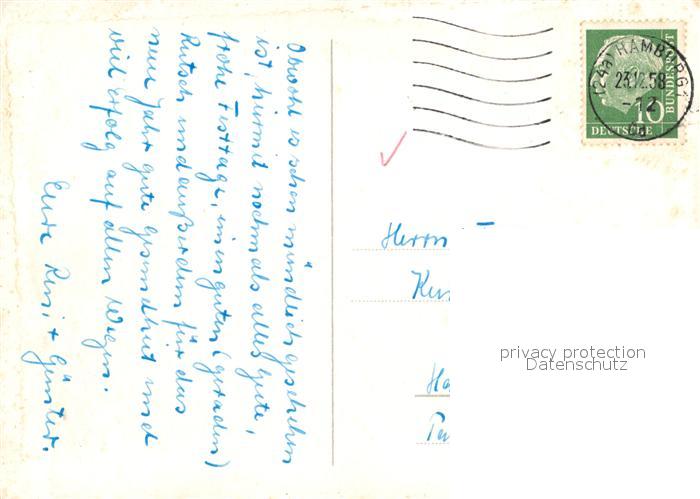 Obwohl es schon mündlich geschehen
ist, hiermit nochmals alles Gute,
frohe Festtage, einen guten (geraden)
Rutsch und außerdem für das
neue Jahr gute Gesundheit und
viel Erfolg auf allen Wegen.
Eure Reni + Günter.
(24a) HAMBURG 1
23.12.58
-12
10
DEUTSCHE
BUNDESPOST
Herrn
privacy protection
Datenschutz